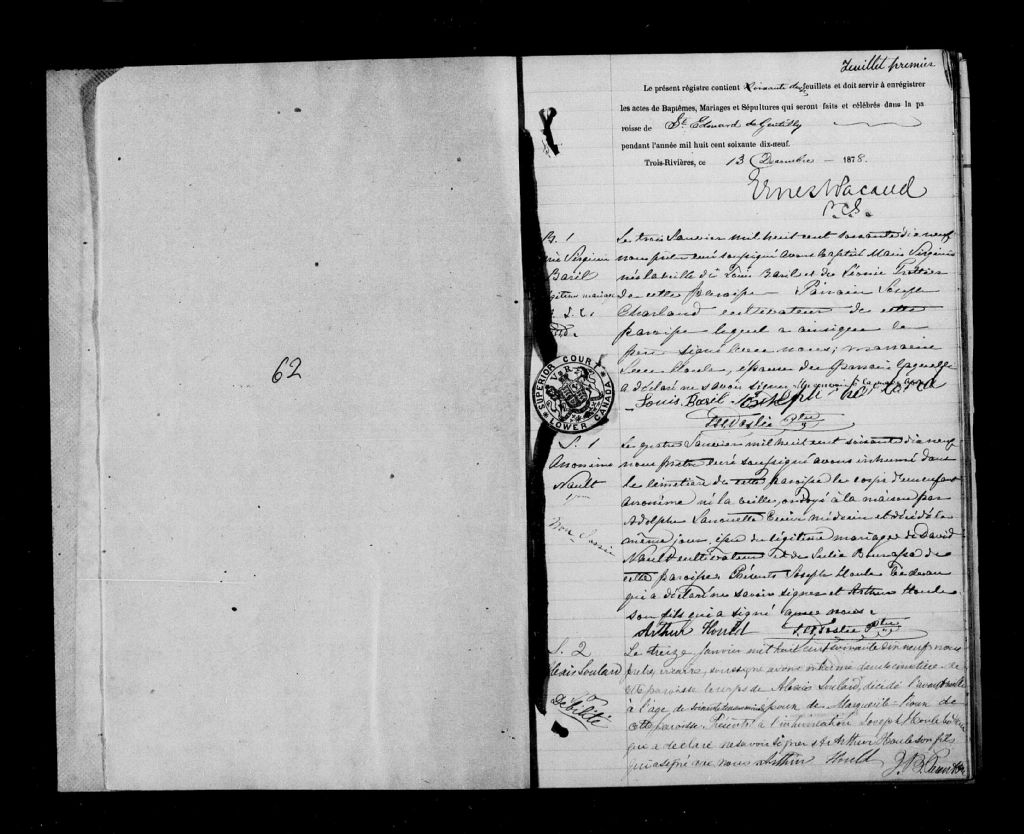 62
Feuillet premier
Le présent régistre contient soixante deux feuillets et doit servir à enrégistrer
les actes de Baptêmes, Mariages et Sépultures qui seront faits et célébrés dans la pa
roisse de St Edouard de Gentilly
pendant l'année mil huit cent soixante dix-neuf.
Trois-Rivières, ce 13 Décembre 1878.
SUPERIOR COURT
LOWER CANADA
B. 1
Virginie
Baril
Le trois Janvier mil huit cent soixante dix neuf
nous prêtre curé soussigné avons baptisé Marie Virginie
née la veille de Louis Baril et de
de cette paroisse Parrain Joseph
Charland cultivateur de cette
paroisse lequel a ainsi que le
père signé avec nous; marraine
Houle, épouse de
a déclaré ne savoir signer
Louis Baril
Ptre
S. 1
Anonime
Nault
Le quatre Janvier mil huit cent soixante dix neuf
nous prêtre curé soussigné avons inhumé dans
le cimetière de cette paroisse le corps d'un enfant
anonime né la veille, ondoyé à la maison par
Adolphe Lanouette Ecuier médecin et décédé le
même jour, du légitime mariage de David
Nault cultivateur et de Julie de
cette paroisse Présents Joseph Houle Bedeau
qui a déclaré ne savoir signer et Arthur Houle
son fils qui a signé avec nous.
Arthur Hould
Ptre
S. 2
Alexis Soulard
Débilité
Le treize Janvier mil huit cent soixante dix neuf nous
prêtre, vicaire, soussigné avons inhumé dans le cimetière de
cette paroisse le corps de Alexis Soulard, décédé l'avant veille
à l'age de époux de Marguerite de
cette paroisse. Présents à l'inhumation Joseph Houle bedeau
qui a déclaré ne savoir signer et Arthur Houle son fils
qui a signé avec nous Arthur Hould